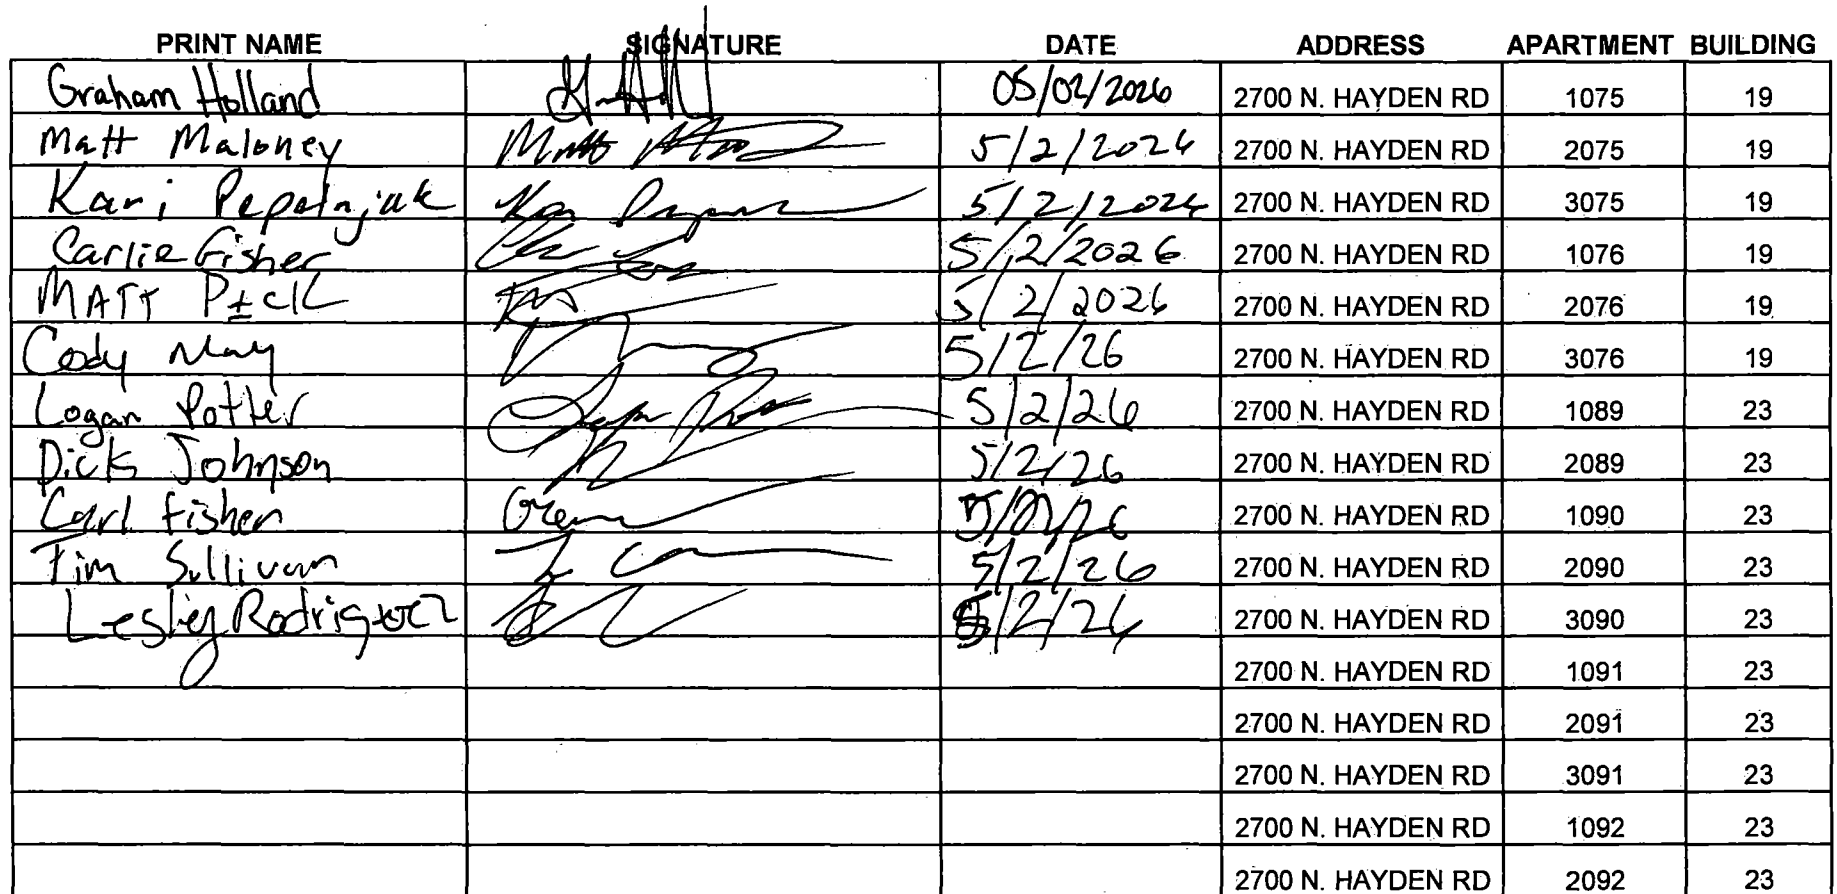 PRINT NAME SIGNATURE DATE ADDRESS APARTMENT BUILDING
Graham Holland 05/02/2026 2700 N. HAYDEN RD 1075 19
Matt Maloney 5/2/2026 2700 N. HAYDEN RD 2075 19
Kari Pepelnjak 5/2/2026 2700 N. HAYDEN RD 3075 19
Carlie Fisher 5/2/2026 2700 N. HAYDEN RD 1076 19
MATT 5/2/2026 2700 N. HAYDEN RD 2076 19
Cody May 5/2/26 2700 N. HAYDEN RD 3076 19
Logan Potter 5/2/26 2700 N. HAYDEN RD 1089 23
Dick Johnson 5/2/26 2700 N. HAYDEN RD 2089 23
Carl Fisher 2700 N. HAYDEN RD 1090 23
Tim Sullivan 5/2/26 2700 N. HAYDEN RD 2090 23
Lesley Rodriguez 5/2/26 2700 N. HAYDEN RD 3090 23
2700 N. HAYDEN RD 1091 23
2700 N. HAYDEN RD 2091 23
2700 N. HAYDEN RD 3091 23
2700 N. HAYDEN RD 1092 23
2700 N. HAYDEN RD 2092 23